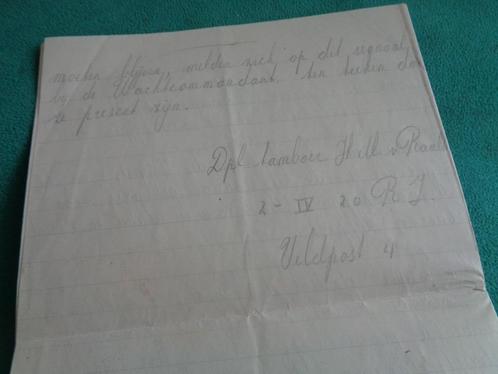 moeten blijven, melden zich op dit signaal
bij de Wachtcommandant, ten teeken dat
ze present zijn.
Dpl. tamboer H. v Raal
2 - IV 20 R. I.
Veldpost 4